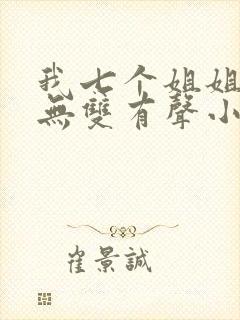 我七个姐姐
無雙有聲小
崔景誠